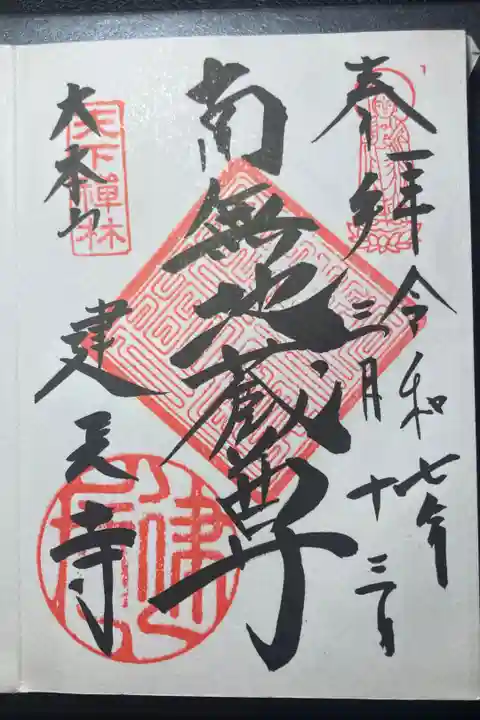 奉拝
令和七年
三月十三日
南無地蔵尊
天下禅林
大本山
建長寺